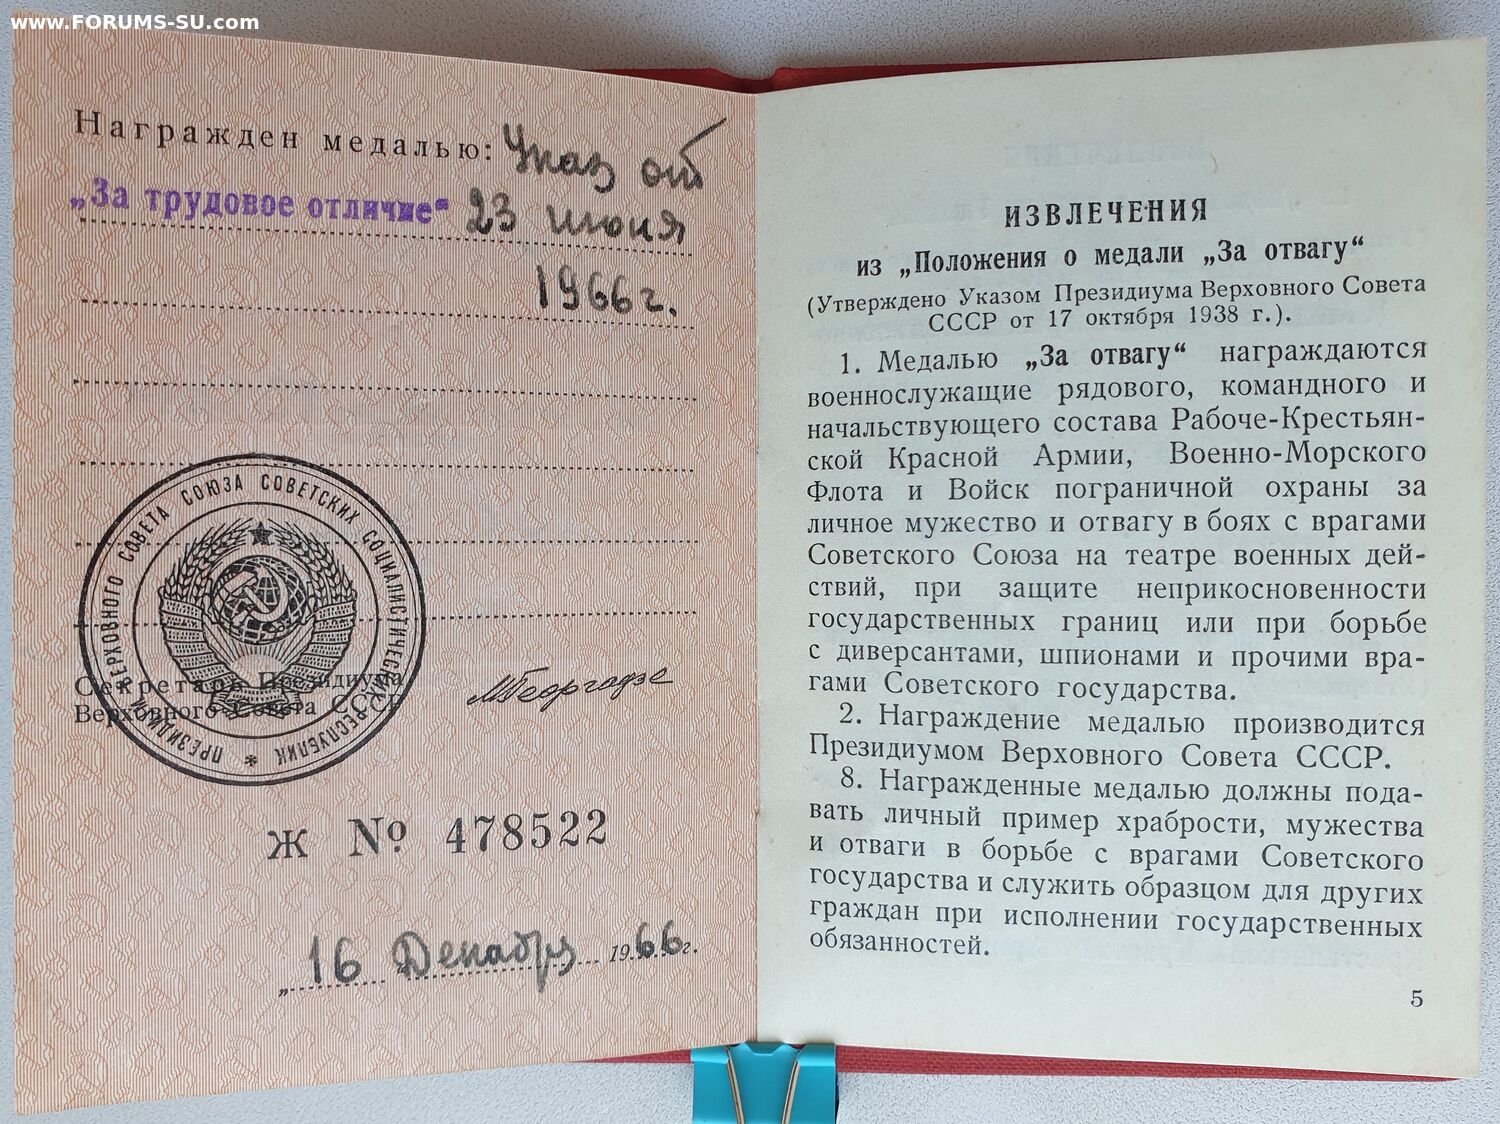 www.FORUMS-SU.com
Награжден медалью: Указ от
„За трудовое отличие“ 23 июня
1966 г.
ПРЕЗИДИУМ ВЕРХОВНОГО СОВЕТА СОЮЗА СОВЕТСКИХ СОЦИАЛИСТИЧЕСКИХ РЕСПУБЛИК *
Секретарь Президиума
Верховного Совета СССР
МГеоргадзе
Ж № 478522
„16 Декабря 1966 г.
ИЗВЛЕЧЕНИЯ
из „Положения о медали „За отвагу“
(Утверждено Указом Президиума Верховного Совета
СССР от 17 октября 1938 г.).
1. Медалью „За отвагу“ награждаются
военнослужащие рядового, командного и
начальствующего состава Рабоче-Крестьян-
ской Красной Армии, Военно-Морского
Флота и Войск пограничной охраны за
личное мужество и отвагу в боях с врагами
Советского Союза на театре военных дей-
ствий, при защите неприкосновенности
государственных границ или при борьбе
с диверсантами, шпионами и прочими вра-
гами Советского государства.
2. Награждение медалью производится
Президиумом Верховного Совета СССР.
8. Награжденные медалью должны пода-
вать личный пример храбрости, мужества
и отваги в борьбе с врагами Советского
государства и служить образцом для других
граждан при исполнении государственных
обязанностей.
5